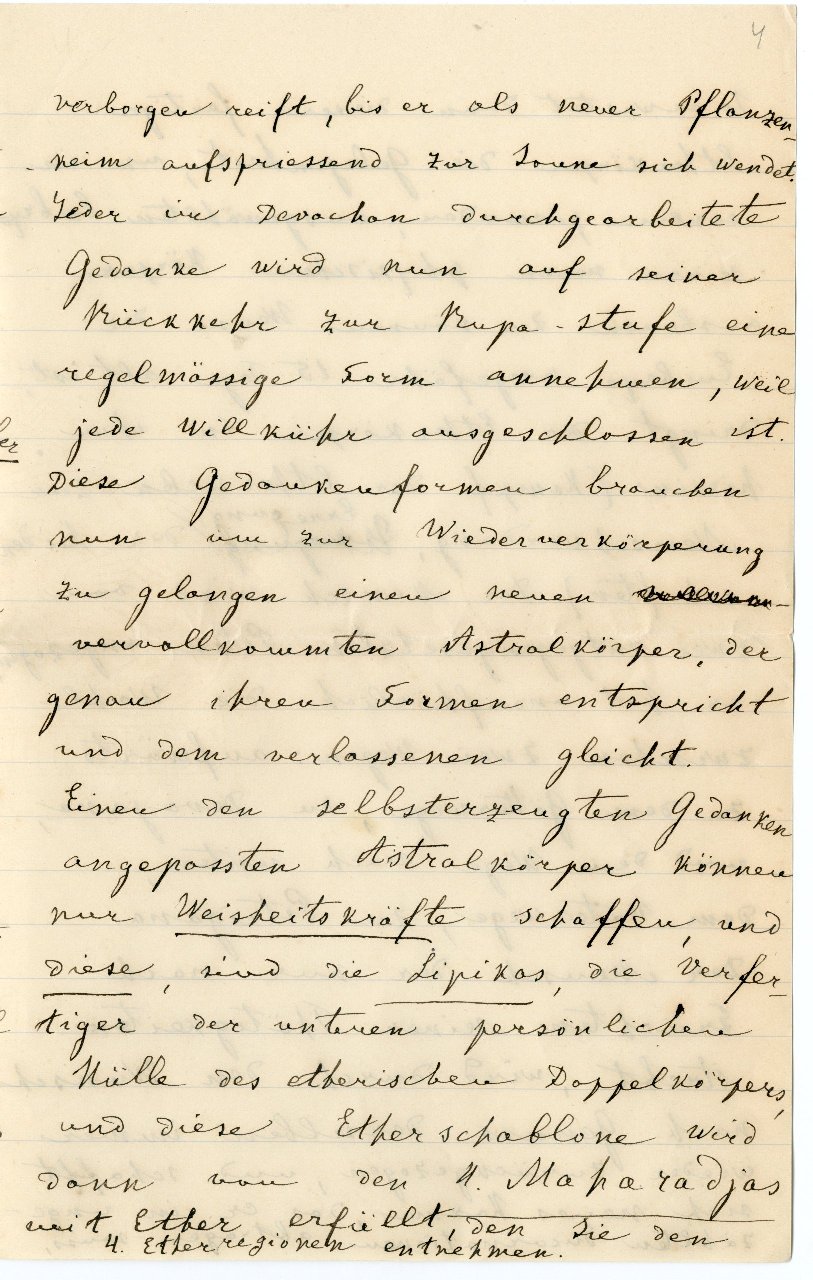 4
verborgen reift, bis er als neuer Pflanzen-
keim aufspriessend zur Sonne sich wendet.
Jeder im Devachan durchgearbeitete
Gedanke wird nun auf seiner
Rückkehr zur Rupa-stufe eine
regelmässige Form annehmen, weil
jede Willkühr ausgeschlossen ist.
Diese Gedankenformen brauchen
nun um zur Wiederverkörperung
zu gelangen einen neuen
vervollkommten Astralkörper, der
genau ihren Formen entspricht
und dem verlassenen gleicht.
Einen den selbsterzeugten Gedanken
angepassten Astralkörper können
nur Weisheitskräfte schaffen, und
diese, sind die Lipikas, die Verfer-
tiger der unteren persönlichen
Hülle des etherischen Doppelkörpers,
und diese Etherschablone wird
dann von den 4. Maharadjas
mit Ether erfüllt, den sie den
4. Etherregionen entnehmen.